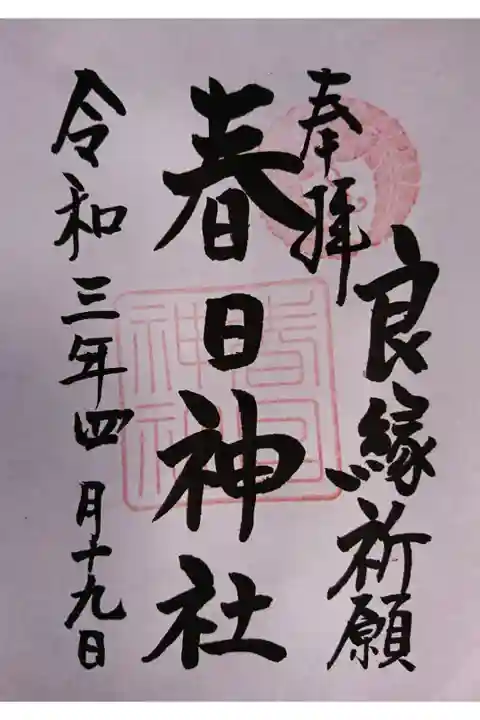 奉拝
良縁祈願
春日神社
令和三年四月十九日
春日
神社